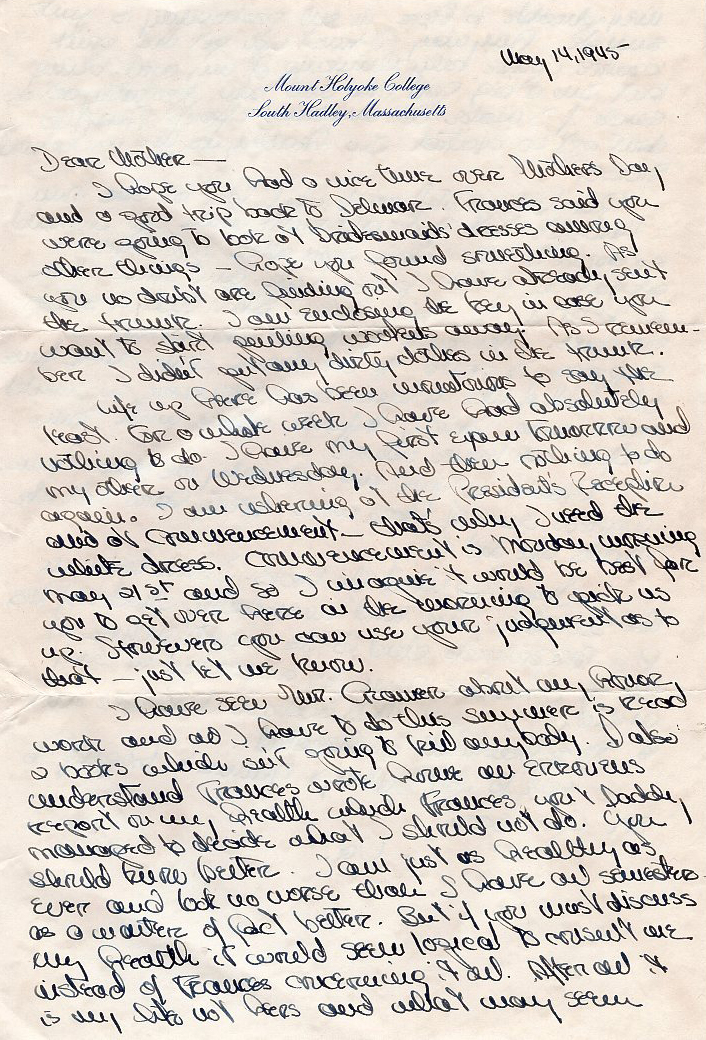 May 14, 1945
Mount Holyoke College
South Hadley, Massachusetts
Dear Mother —
I hope you had a nice time over Mothers Day
and a good trip back to Delmar. Frances said you
were going to look at bridesmaids' dresses among
other things – hope you found something. As
you no doubt are finding out I have already sent
the trunk. I am enclosing the key in case you
want to start putting woolens away. As I remem-
ber I didn't put any dirty clothes in the trunk.
Life up here has been monotonous to say the
least. For a whole week I have had absolutely
nothing to do. I have my first exam tomorrow and
my other on Wednesday. And then nothing to do
again. I am ushering at the President's Reception
and at Commencement – that's why I need the
white dress. Commencement is Monday morning
May 21st and so I imagine it would be best for
you to get over here in the morning to pick us
up. However you can use your judgment as to
that – just let me know.
I have seen Mr. about my honor
work and all I have to do this summer is read
books which isn't going to kill anybody. I also
understand Frances wrote home an erroneous
report on my health which Frances, you & Daddy
managed to decide what I should not do. You
should know better. I am just as healthy as
ever and look no worse than I have all semester
as a matter of fact better. But if you must discuss
my health it would seem logical to consult me
instead of Frances concerning it all. After all it
is my life not hers and what may seem